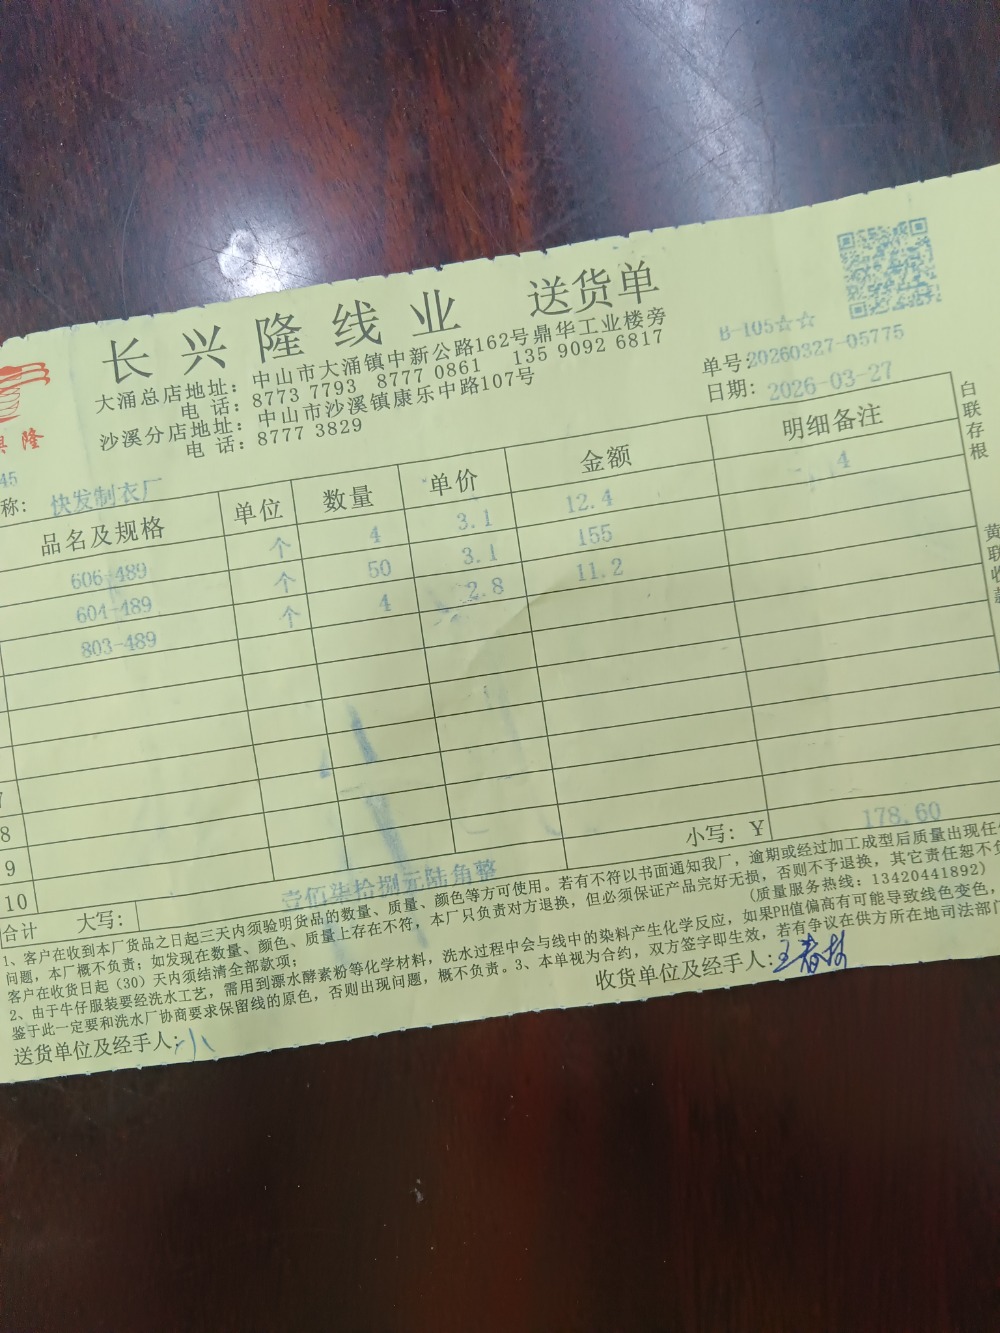 长兴隆线业 送货单
大涌总店地址：中山市大涌镇中新公路162号鼎华工业楼旁
电 话：8773 7793 8777 0861 135 9092 6817
沙溪分店地址：中山市沙溪镇康乐中路107号
电 话：8777 3829
隆
B-105☆☆
单号：20260327-05775
日期：2026-03-27
45
称：快发制衣厂
品名及规格 单位 数量 单价 金额 明细备注
606-489 个 4 3.1 12.4 4
604-489 个 50 3.1 155
803-489 个 4 2.8 11.2
7
8
9
10
小写：￥ 178.60
合计 大写：壹佰柒拾捌元陆角整
1、客户在收到本厂货品之日起三天内须验明货品的数量、质量、颜色等方可使用。若有不符以书面通知我厂，逾期或经过加工成型后质量出现任
问题，本厂概不负责；如发现在数量、颜色、质量上存在不符，本厂只负责对方退换，但必须保证产品完好无损，否则不予退换，其它责任恕不负
客户在收货日起（30）天内须结清全部款项； （质量服务热线：13420441892）
2、由于牛仔服装要经洗水工艺，需用到漂水酵素粉等化学材料，洗水过程中会与线中的染料产生化学反应，如果PH值偏高有可能导致线色变色，
鉴于此一定要和洗水厂协商要求保留线的原色，否则出现问题，概不负责。3、本单视为合约，双方签字即生效，若有争议在供方所在地司法部门
送货单位及经手人：小
收货单位及经手人：王春林
白联存根
黄联收款